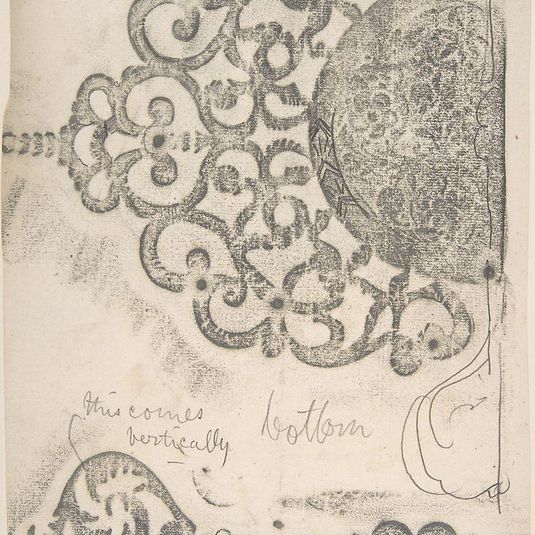 this comes
vertically
bottom